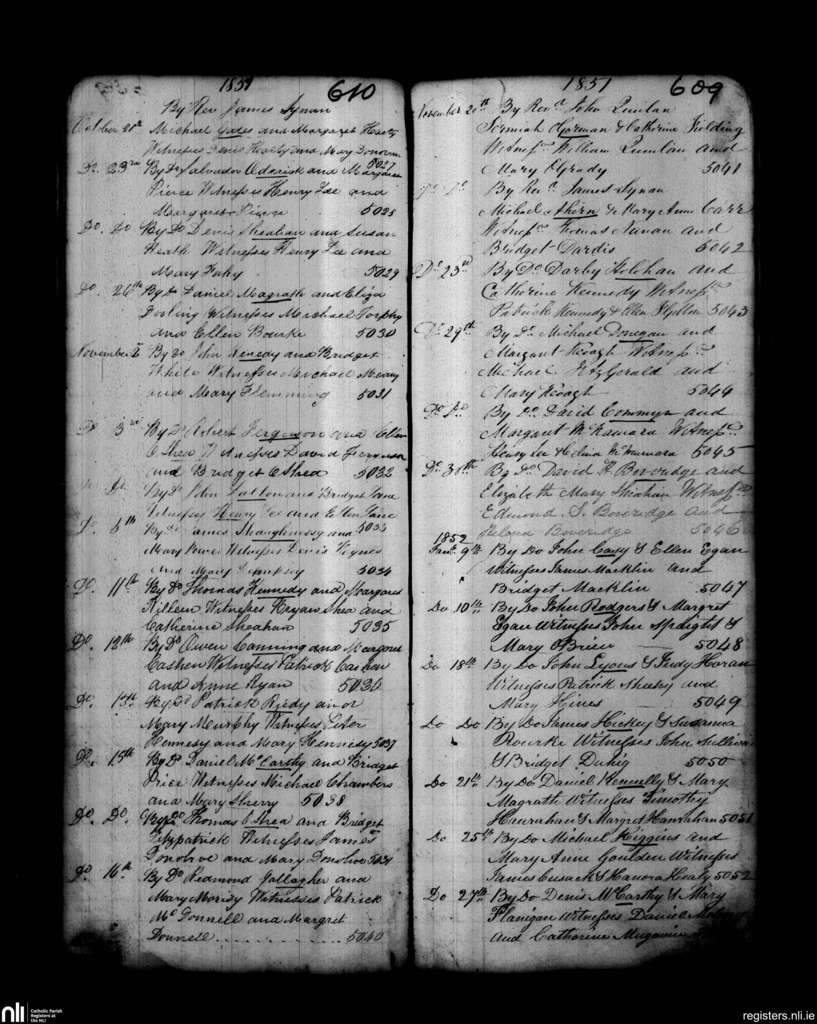 1851 610
By Rev James Synan
October 21th Michael and Margaret Healy
Witnesses Denis Healy and Mary
5027
Do. 23rd By Do Salvador Oderick and Margaret
Pierce Witnesses Henry Lee and
Margaret 5028
Do. Do By Do Denis Sheahan and Susan
Heath Witnesses Henry Lee and
Mary Fahy 5029
Do. 26th By Do Daniel Magrath and Eliza
Witnesses Michael
and Ellen Bourke 5030
November By Do John and Bridget
White Witnesses Michael Meany
and Mary Flemming 5031
Do 3rd By Do Robert Ferguson and Ellen
O Shea Witnesses David Ferguson
and Bridget O Shea 5032
Do Do By Do John and Bridget
Witnesses Henry Lee and Ellen
5033
Do. 8th By Do James Shaughnessy and
Mary Witnesses Denis
and Mary 5034
Do. 11th By Do Thomas Kennedy and Margaret
Killeen Witnesses Bryan Shea and
Catherine Sheahan 5035
Do. 13th By Do Owen Canning and Margaret
Cashen Witnesses Patrick Cashen
and Anne Ryan 5036
Do. 13th By Do Patrick Ruedy and
Mary Murphy Witnesses Peter
Hennesy and Mary Hennesy 5037
Do. 15th By Do Daniel McCarthy and Bridget
Price Witnesses Michael Chambers
and Mary Sherry 5038
Do. Do. By Do Thomas O Shea and Bridget
Fitzpatrick Witnesses James
Donohoe and Mary Donohoe 5039
Do. 16th By Do Redmond Gallagher and
Mary Witnesses Patrick
McDonnell and Margret
Donnell 5040
1851 609
November 20th By Revd John Quinlan
Jeremiah & Catherine Fielding
Witnesses William Quinlan and
Mary O'Grady 5041
Do Do By Revd James Synan
Michael Ahern & Mary Anne Carr
Witnesses Thomas Nunan and
Bridget Dardis 5042
Do 23rd By Do Darby Holohan and
Catherine Kennedy Witnesses
Patrick Kennedy & Ellen 5043
Do 29th By Do Michael Donegan and
Margaret Keogh Witnesses
Michael FitzGerald and
Mary Keogh 5044
Do Do By Do David Commyn and
Margaret McNamara Witnesses
Henry Lee & McNamara 5045
Do 31th By Do David H Boveridge and
Elizabeth Mary Sheahan Witnesses
Edmond S. Boveridge and
Helena Boveridge 5046
1852
Jany 9th By Do John Casey & Ellen Egan
Witnesses James Macklin and
Bridget Macklin 5047
Do 10th By Do John Rodgers & Margret
Egan Witnesses John Spedight &
Mary O'Brien 5048
Do 18th By Do John Lyons & Judy Horan
Witnesses Patrick Sheehy and
Mary Hines 5049
Do Do By Do James Hickey & Susanna
Rourke Witnesses John Sullivan
& Bridget Duhig 5050
Do 21th By Do Daniel Kennelly & Mary
Magrath Witnesses Timothy
Hanrahan & Margret Hanrahan 5051
Do 25th By Do Michael Higgins and
Mary Anne Goulden Witnesses
James Cusack & Hanora Healy 5052
Do 27th By Do Denis McCarthy & Mary
Flanigan Witnesses Daniel
and Catherine
nli Catholic Parish Registers at the NLI
registers.nli.ie